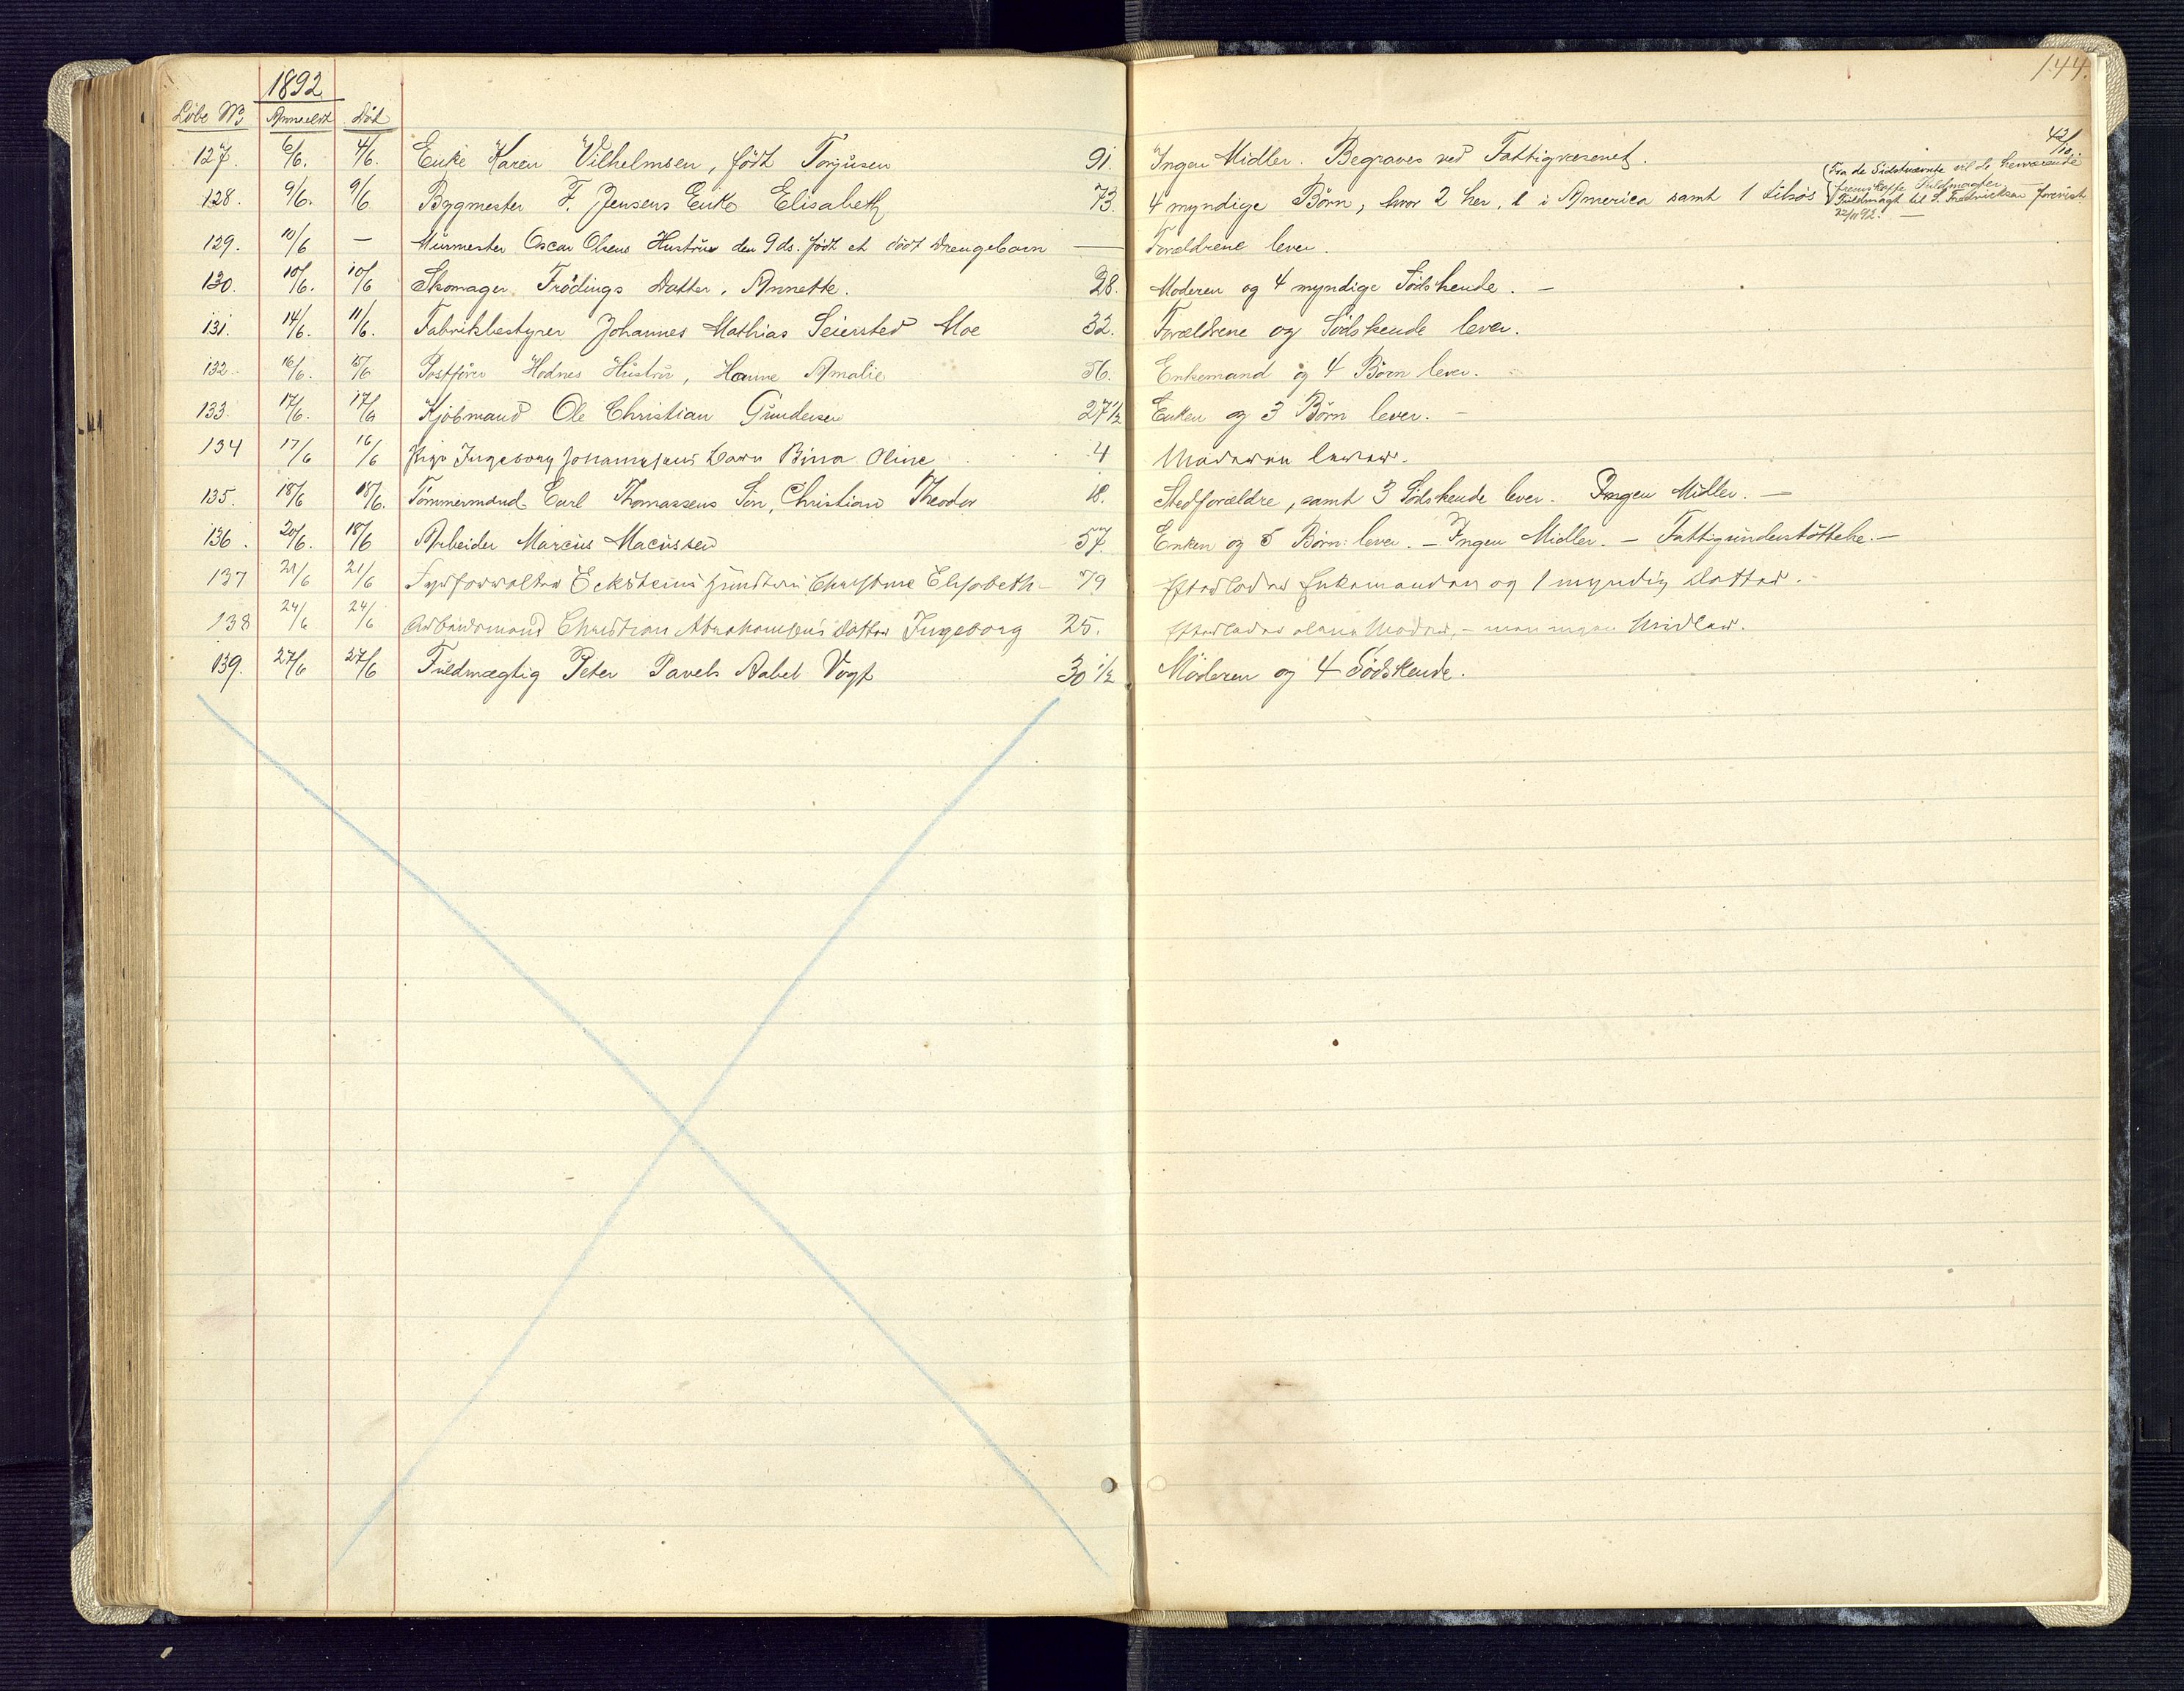 144.
1892
Löbe No Anmeldt Död
127. 6/6. 4/6. Enke Karen Vilhelmsen, födt Torjusen 91. Ingen Midler. Begraves ved Fattigvæsenet.
128. 9/6. 9/6 Bygmester F. Jensens Enke Elisabeth 73. 4 myndige Börn, hvor 2 her, 1 i America samt 1 tilsös
(Fra de Sidstnævnte vil de herværende
fremskaffe Fuldmagter.
Fuldmagt til S. Fredriksen forevist
22/11 92. —
129. 10/6 — Murmester Oscar Olsens Hustru den 9 ds. födt et död Drengebarn — Forældrene lever.
130. 10/6. 10/6 Skomager Frödings Datter, Annette. 28. Moderen og 4 myndige Södskende. —
131. 14/6. 11/6. Fabrikbestyrer Johannes Mathias Seiersted Moe 32. Forældrene og Södskende lever.
132. 16/6. 15/6 Postförer Hodnes Hustru, Hanne Amalie 56. Enkemand og 4 Börn lever.
133. 17/6. 17/6 Kjöbmand Ole Christian Gundersen 27 1/2 Enken og 3 Börn lever. —
134 17/6 16/6 Pige Ingeborg Johannesens Barn Bina Oline 4 Moderen lever.
135. 18/6 18/6. Tömmermand Carl Thomassens Sön, Christian Theodor 18. Stedforældre, samt 3 Södskende lever. Ingen Midler. —
136. 20/6. 18/6 Arbeider Marcus Macussen 57 Enken og 5 Börn lever. — Ingen Midler. — Fattigunderstöttelse. —
137 21/6 21/6 Fyrforvalter Ecksteins Hustru Christine Elisabeth — 79 Efterlader Enkemanden og 1 myndig Datter.
138 24/6 24/6 Arbeidsmand Christian Abrahamsens Datter Ingeborg 25. Efterlader alene Moder, — men ingen Midler.
139. 27/6 27/6 Fuldmægtig Peter Pavels Aabel Vogt 30 1/2 Moderen og 4 Södskende.